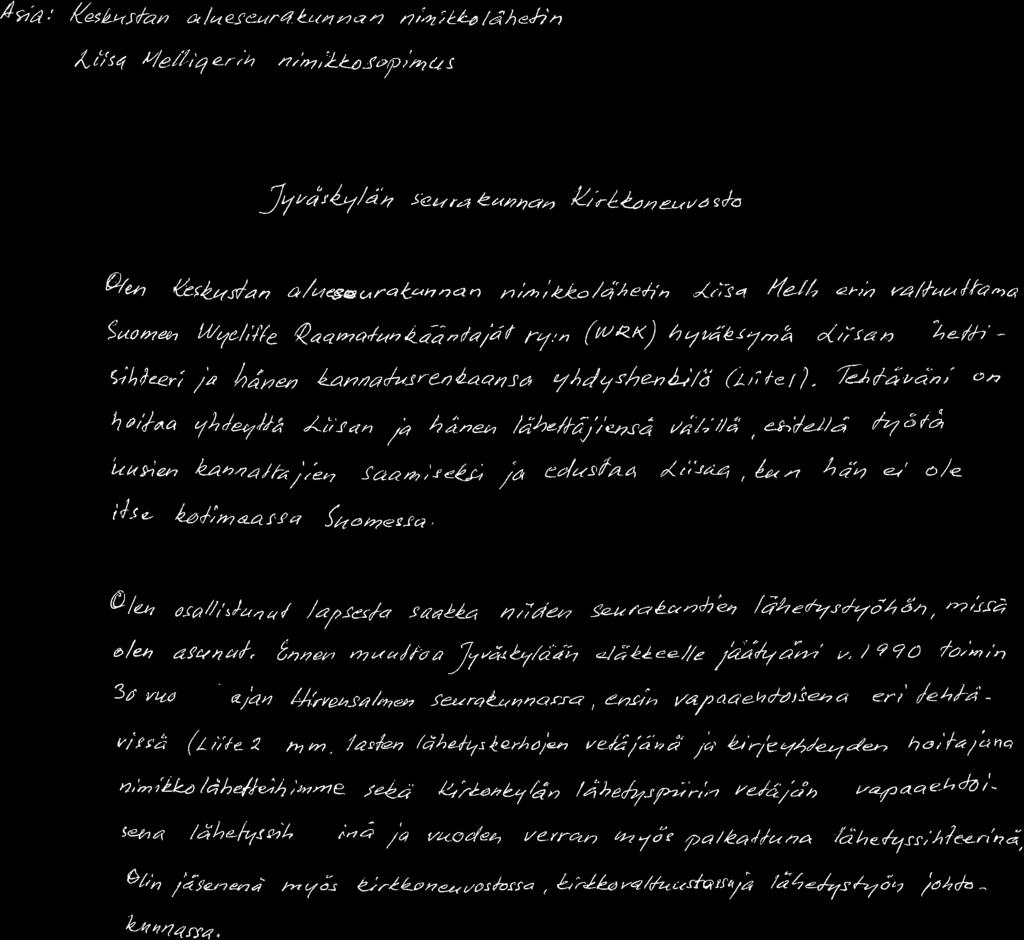 Asia: Keskustan alueseurakunnan nimikkolähetin
Liisa Melligerin nimikkosopimus
Jyväskylän seurakunnan Kirkkoneuvosto
Olen Keskustan alueseurakunnan nimikkolähetin Liisa Mell erin valtuuttama
Suomen Wycliffe Raamatunkääntäjät ry:n (WRK) hyväksymä Liisan hetti-
sihteeri ja hänen kannatusrenkaansa yhdyshenkilö (Liite1). Tehtäväni on
hoitaa yhteyttä Liisan ja hänen lähettäjiensä välillä, esitellä työtä
uusien kannattajien saamiseksi ja edustaa Liisaa, kun hän ei ole
itse kotimaassa Suomessa.
Olen osallistunut lapsesta saakka niiden seurakuntien lähetystyöhön, missä
olen asunut. Ennen muuttoa Jyväskylään eläkkeelle jäätyäni v. 1990 toimin
30 vuo ajan Hirvensalmen seurakunnassa, ensin vapaaehtoisena eri tehtä-
vissä (Liite 2 mm. lasten lähetyskerhojen vetäjänä ja kirjeyhteyden hoitajana
nimikkolähetteihimme sekä Kirkonkylän lähetyspiirin vetäjän vapaaehtoi-
sena lähetyssih inä ja vuoden verran myös palkattuna lähetyssihteerinä.
Olin jäsenenä myös kirkkoneuvostossa, kirkkovaltuustossa ja lähetystyön johto-
kunnassa.